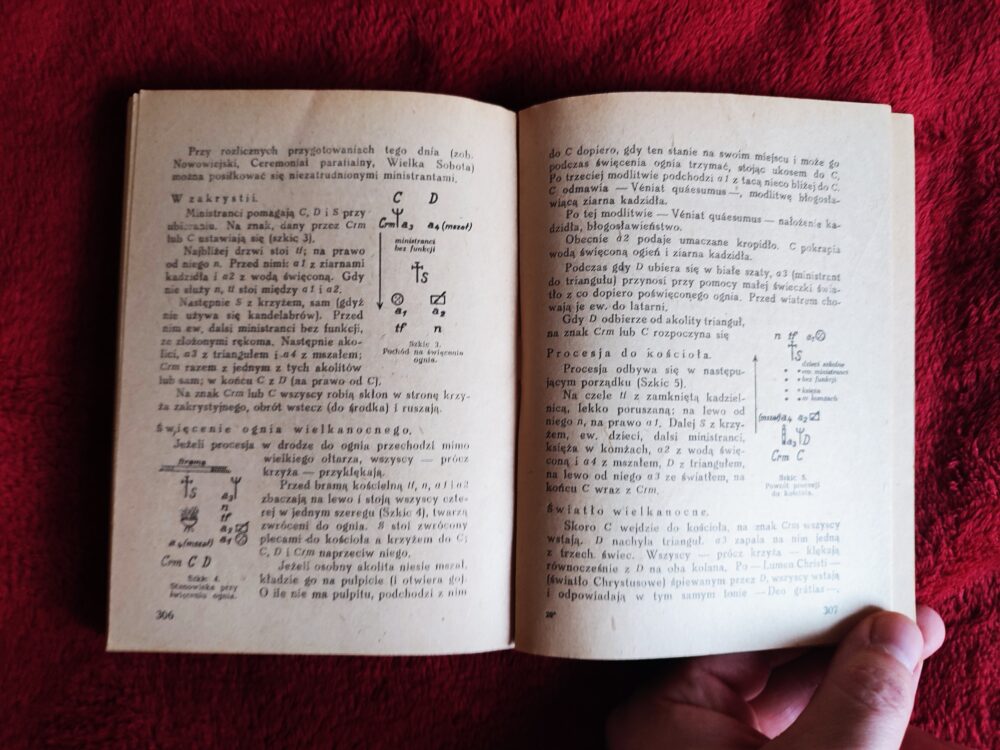 Przy rozlicznych przygotowaniach tego dnia (zob.
Nowowiejski, Ceremoniał parafialny, Wielka Sobota)
można posiłkować się niezatrudnionymi ministrantami.
W zakrystii.
Ministranci pomagają C, D i S przy
ubieraniu. Na znak, dany przez Crm
lub C ustawiają się (szkic 3).
Najbliżej drzwi stoi tf; na prawo
od niego n. Przed nimi: a1 z ziarnami
kadzidła i a2 z wodą święconą. Gdy
nie służy n, tf stoi między a1 i a2.
Następnie S z krzyżem, sam (gdyż
nie używa się kandelabrów). Przed
nim ew. dalsi ministranci bez funkcji,
ze złożonymi rękoma. Następnie ako-
lici, a3 z triangułem i a4 z mszałem;
Crm razem z jednym z tych akolitów
lub sam; w końcu C z D (na prawo od C).
C D
Crm a3 a4 (mszał)
ministranci
bez funkcji
S
a1 a2
tf n
Szkic 3.
Pochód na święcenie
ognia.
Na znak Crm lub C wszyscy robią skłon w stronę krzy-
ża zakrystyjnego, obrót wstecz (do środka) i ruszają.
Święcenie ognia wielkanocnego.
Jeżeli procesja w drodze do ognia przechodzi mimo
wielkiego ołtarza, wszyscy — prócz
krzyża — przyklękają.
Przed bramą kościelną tf, n, a1 i a2
zbaczają na lewo i stoją wszyscy czte-
rej w jednym szeregu (Szkic 4), twarzą
zwróceni do ognia. S stoi zwrócony
plecami do kościoła a krzyżem do C;
C, D i Crm naprzeciw niego.
Jeżeli osobny akolita niesie mszał,
kładzie go na pulpicie (i otwiera go).
O ile nie ma pulpitu, podchodzi z nim
Brama
S a3
n
tf
a2
a4 (mszał) a1
Crm C D
Szkic 4.
Stanowiska przy
święceniu ognia.
306
do C dopiero, gdy ten stanie na swoim miejscu i może go
podczas święcenia ognia trzymać, stojąc ukosem do C.
Po trzeciej modlitwie podchodzi a1 z tacą nieco bliżej do C.
C odmawia — Véniat quáesumus —, modlitwę błogosła-
wiącą ziarna kadzidła.
Po tej modlitwie — Véniat quáesumus — nałożenie ka-
dzidła, błogosławieństwo.
Obecnie a2 podaje umaczane kropidło. C pokrapia
wodą święconą ogień i ziarna kadzidła.
Podczas gdy D ubiera się w białe szaty, a3 (ministrant
do triangułu) przynosi przy pomocy małej świeczki świa-
tło z co dopiero poświęconego ognia. Przed wiatrem cho-
wają je ew. do latarni.
Gdy D odbierze od akolity trianguł,
na znak Crm lub C rozpoczyna się
Procesja do kościoła.
Procesja odbywa się w następu-
jącym porządku (Szkic 5).
Na czele tf z zamkniętą kadziel-
nicą, lekko poruszaną; na lewo od
niego n, na prawo a1. Dalej S z krzy-
żem, ew. dzieci, dalsi ministranci,
księża w komżach, a2 z wodą świę-
coną i a4 z mszałem, D z triangułem,
na lewo od niego a3 ze światłem, na
końcu C wraz z Crm.
n tf a1
S
dzieci szkolne
ew. ministranci
bez funkcji
księża
w komżach
(mszał) a4 a2
a3 D
Crm C
Szkic 5.
Powrót procesji
do kościoła.
Światło wielkanocne.
Skoro C wejdzie do kościoła, na znak Crm wszyscy
wstają. D nachyla trianguł. a3 zapala na nim jedną
z trzech świec. Wszyscy — prócz krzyża — klękają
równocześnie z D na oba kolana. Po — Lumen Christi —
(światło Chrystusowe) śpiewanym przez D, wszyscy wstają
i odpowiadają w tym samym tonie — Deo grátias —.
20*
307